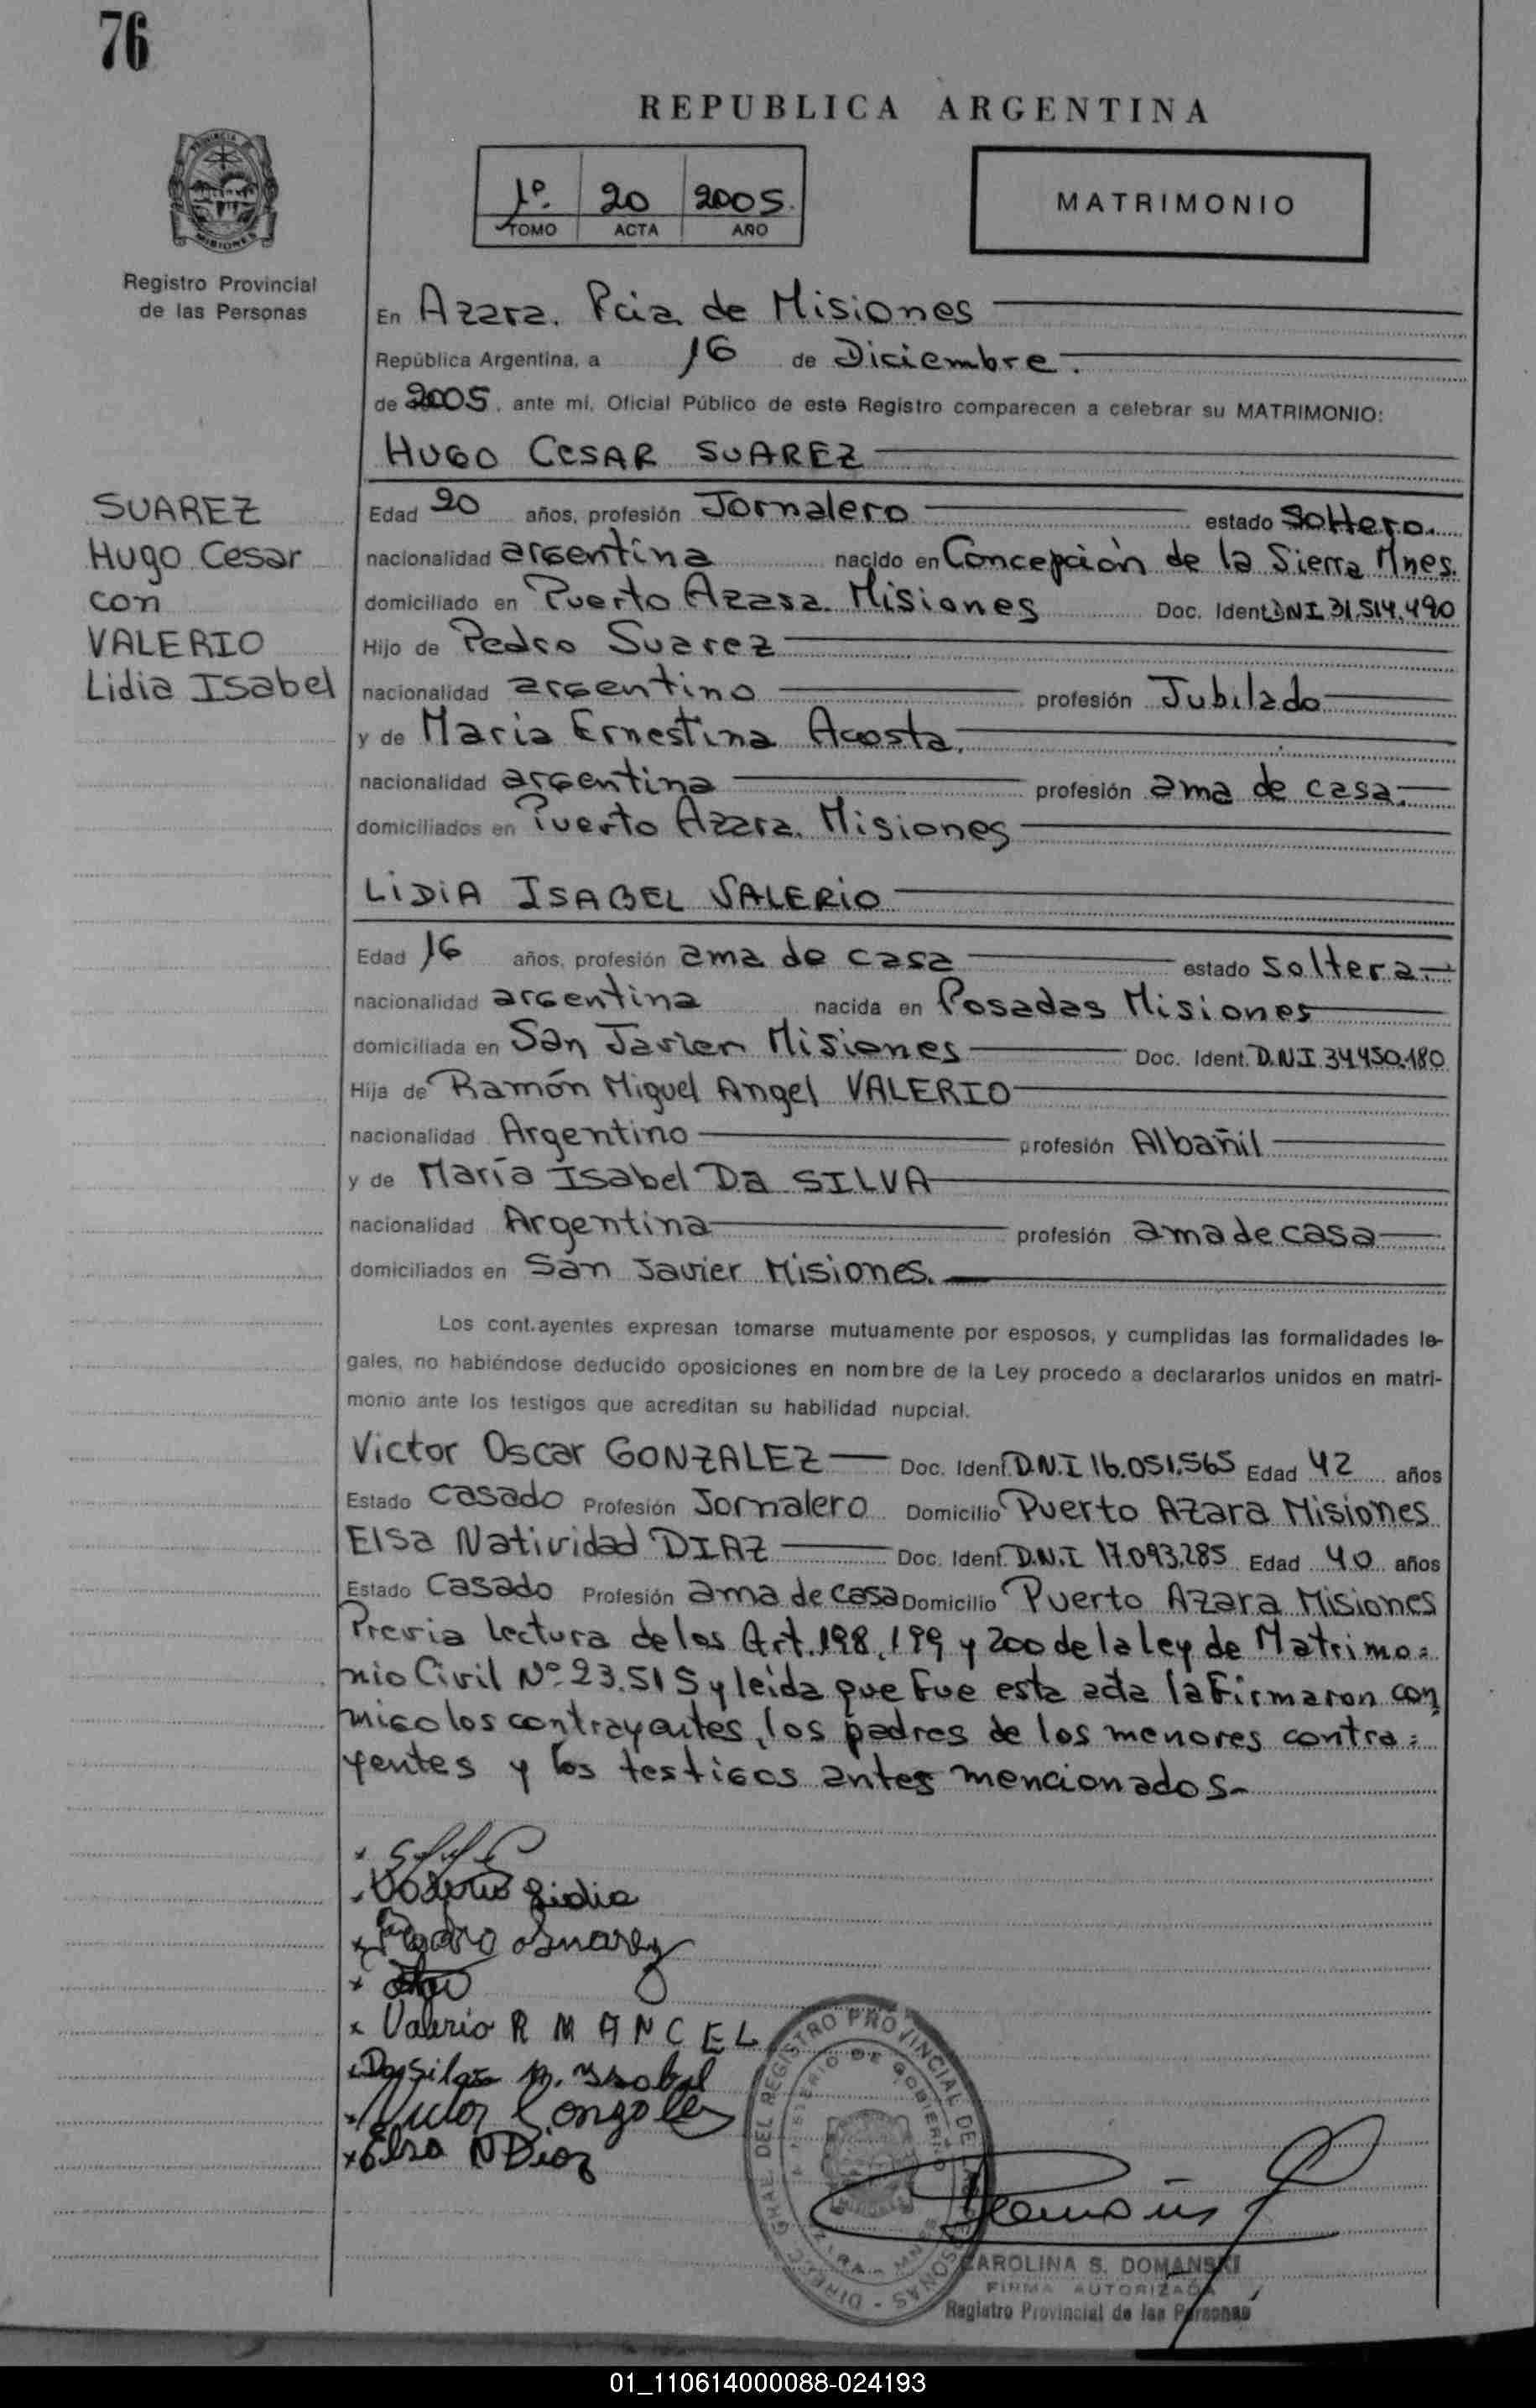 76
REPUBLICA ARGENTINA
1º. 20 2005.
TOMO ACTA AÑO
MATRIMONIO
PROVINCIA DE MISIONES
Registro Provincial
de las Personas
En Azara. Pcia de Misiones
República Argentina, a 16 de Diciembre.
de 2005, ante mí, Oficial Público de este Registro comparecen a celebrar su MATRIMONIO:
HUGO CESAR SUAREZ
SUAREZ
Hugo Cesar
con
VALERIO
Lidia Isabel
Edad 20 años, profesión Jornalero estado Soltero.
nacionalidad argentina nacido en Concepción de la Sierra Mnes.
domiciliado en Puerto Azara. Misiones Doc. Ident. DNI 31.514.490
Hijo de Pedro Suarez
nacionalidad argentino profesión Jubilado
y de Maria Ernestina Acosta.
nacionalidad argentina profesión ama de casa.
domiciliados en Puerto Azara. Misiones
LIDIA ISABEL VALERIO
Edad 16 años, profesión ama de casa estado soltera.
nacionalidad argentina nacida en Posadas Misiones
domiciliada en San Javier Misiones Doc. Ident. D.N.I. 34.450.180
Hija de Ramón Miguel Angel VALERIO
nacionalidad Argentino profesión Albañil
y de María Isabel Da SILVA
nacionalidad Argentina profesión ama de casa
domiciliados en San Javier Misiones.
Los cont.ayentes expresan tomarse mutuamente por esposos, y cumplidas las formalidades le-
gales, no habiéndose deducido oposiciones en nombre de la Ley procedo a declararlos unidos en matri-
monio ante los testigos que acreditan su habilidad nupcial.
Victor Oscar GONZALEZ Doc. Ident. D.N.I 16.051.565 Edad 42 años
Estado Casado Profesión Jornalero Domicilio Puerto Azara Misiones
Elsa Natividad DIAZ Doc. Ident. D.N.I 17.093.285 Edad 40 años
Estado Casado Profesión ama de casa Domicilio Puerto Azara Misiones
Previa lectura de los Art. 198, 199 y 200 de la ley de Matrimo=
nio Civil Nº 23.515 y leída que fue esta acta la firmaron con
migo los contrayentes, los padres de los menores contra=
yentes y los testigos antes mencionados-
Valerio Lidia
Pedro Suarez
Valerio R M ANGEL
Dasilva M. Isabel
Victor Gonzalez
Elsa N Diaz
DIRECC. GRAL. DEL REGISTRO PROVINCIAL DE LAS PERSONAS
MINISTERIO DE GOBIERNO
AZARA - MNES
CAROLINA S. DOMANSKI
FIRMA AUTORIZADA
Registro Provincial de las Personas
01_110614000088-024193